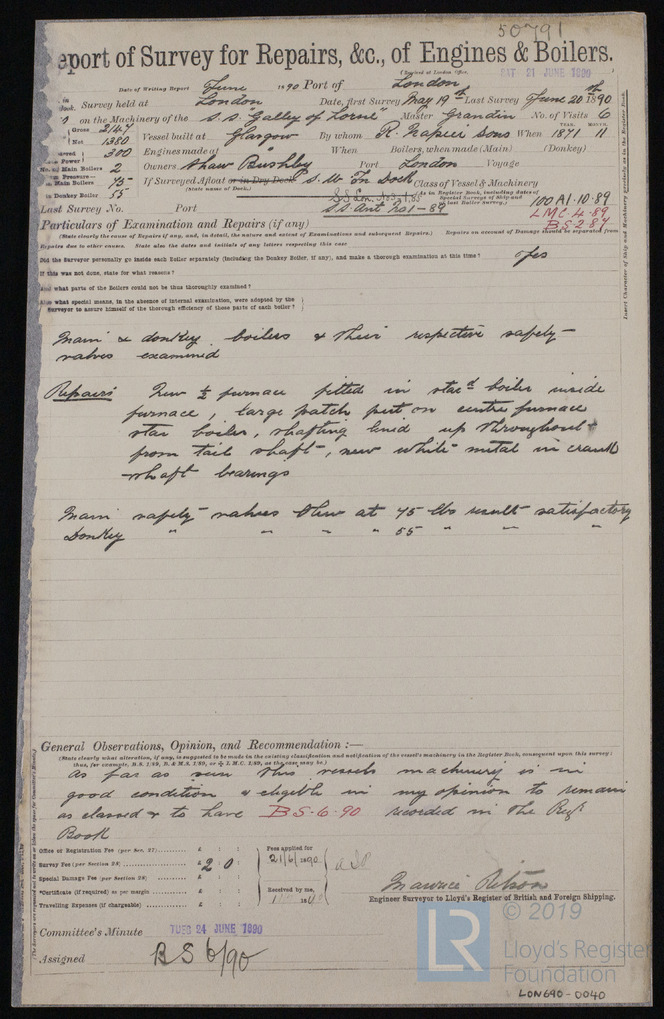 50791
eport of Survey for Repairs, &c., of Engines & Boilers.
(Received at London Office,
SAT 21 JUNE 1890
Date of Writing Report June 1890 Port of London
Survey held at London Date, first Survey May 19th Last Survey June 20th 1890
on the Machinery of the S.S. "Galley of Lorne" Master Grandin No. of Visits 6
Gross 2147
Net 1380
Vessel built at Glasgow By whom R. Napier & Sons When 1871 11
YEAR. MONTH.
300 Engines made at When Boilers, when made (Main) (Donkey)
Main Boilers 2 Owners Shaw Bushby Port London Voyage
Main Boilers 75 If Surveyed Afloat or in Dry Dock S. W. In Dock Class of Vessel & Machinery
(State name of Dock.)
Donkey Boiler 55
(as in Register Book, including dates of Special Surveys of Ship and last Boiler Survey.)
100 A1. 10.89
L.M.C. 4.89
B.S 2.89
Last Survey No. Port
Particulars of Examination and Repairs (if any)
(State clearly the cause of Repairs if any, and, in detail, the nature and extent of Examinations and subsequent Repairs.) Repairs on account of Damage should be separated from
Repairs due to other causes. State also the dates and initials of any letters respecting this case
Did the Surveyor personally go inside each Boiler separately (including the Donkey Boiler, if any), and make a thorough examination at this time? Yes
If this was not done, state for what reasons?
And what parts of the Boilers could not be thus thoroughly examined?
Also what special means, in the absence of internal examination, were adopted by the
Surveyor to assure himself of the thorough efficiency of those parts of each boiler?
Insert Character of Ship and Machinery precisely as in the Register Book.
Main & donkey boilers & their respective safety
valves examined
Repairs New ½ furnace fitted in starbd boiler inside
furnace, large patch put on centre furnace
star boiler, shafting lined up throughout
from tail shaft, new white metal in crank
shaft bearings
Main safety valves blew at 75 lbs result satisfactory
Donkey " " " " 55 " " "
General Observations, Opinion, and Recommendation :—
(State clearly what alteration, if any, is suggested to be made in the existing classification and notification of the vessel's machinery in the Register Book, consequent upon this survey:
thus, for example, B.S. 1/89, B. & M.S. 1/89, or L.M.C. 1/89, as the case may be.)
As far as seen this vessels machinery is in
good condition & eligible in my opinion to remain
as classed & to have B.S. 6.90 recorded in the Regr
Book
Office or Registration Fee (per Sec. 27) £ : :
Fees applied for
Survey Fee (per Section 28) £ 2 : 0 :
21/6/1890
Special Damage Fee (per Section 28) £ : :
*Certificate (if required) as per margin £ : :
Received by me,
Travelling Expenses (if chargeable) £ : :
Maurice Ritson
Engineer Surveyor to Lloyd's Register of British and Foreign Shipping.
Committee's Minute TUES 24 JUNE 1890
Assigned B S 6/90
© 2019
LR
Lloyd's Register
Foundation
LON690-0040